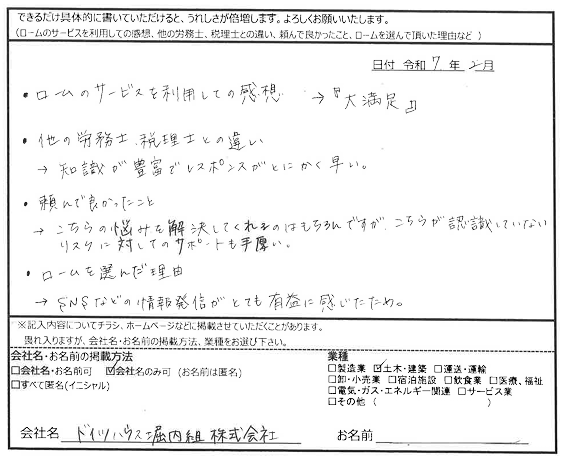 できるだけ具体的に書いていただけると、うれしさが倍増します。よろしくお願いいたします。
(ロームのサービスを利用しての感想、他の労務士、税理士との違い、頼んで良かったこと、ロームを選んで頂いた理由など )
日付 令和 7 年 2 月
・ロームのサービスを利用しての感想 → 『大満足』
・他の労務士、税理士との違い
→ 知識が豊富でレスポンスがとにかく早い。
・頼んで良かったこと
→ こちらの悩みを解決してくれるのはもちろんですが、こちらが認識していない
リスクに対してのサポートも手厚い。
・ロームを選んだ理由
→ SNSなどの情報発信がとても有益に感じたため。
※記入内容についてチラシ、ホームページなどに掲載させていただくことがあります。
畏れ入りますが、会社名・お名前の掲載方法、業種をお選び下さい。
会社名・お名前の掲載方法
□会社名・お名前可 ☑会社名のみ可 (お名前は匿名)
□すべて匿名(イニシャル)
業種
□製造業 ☑土木・建築 □運送・運輸
□卸・小売業 □宿泊施設 □飲食業 □医療、福祉
□電気・ガス・エネルギー関連 □サービス業
□その他 ( )
会社名 ドイツハウス堀内組 株式会社
お名前